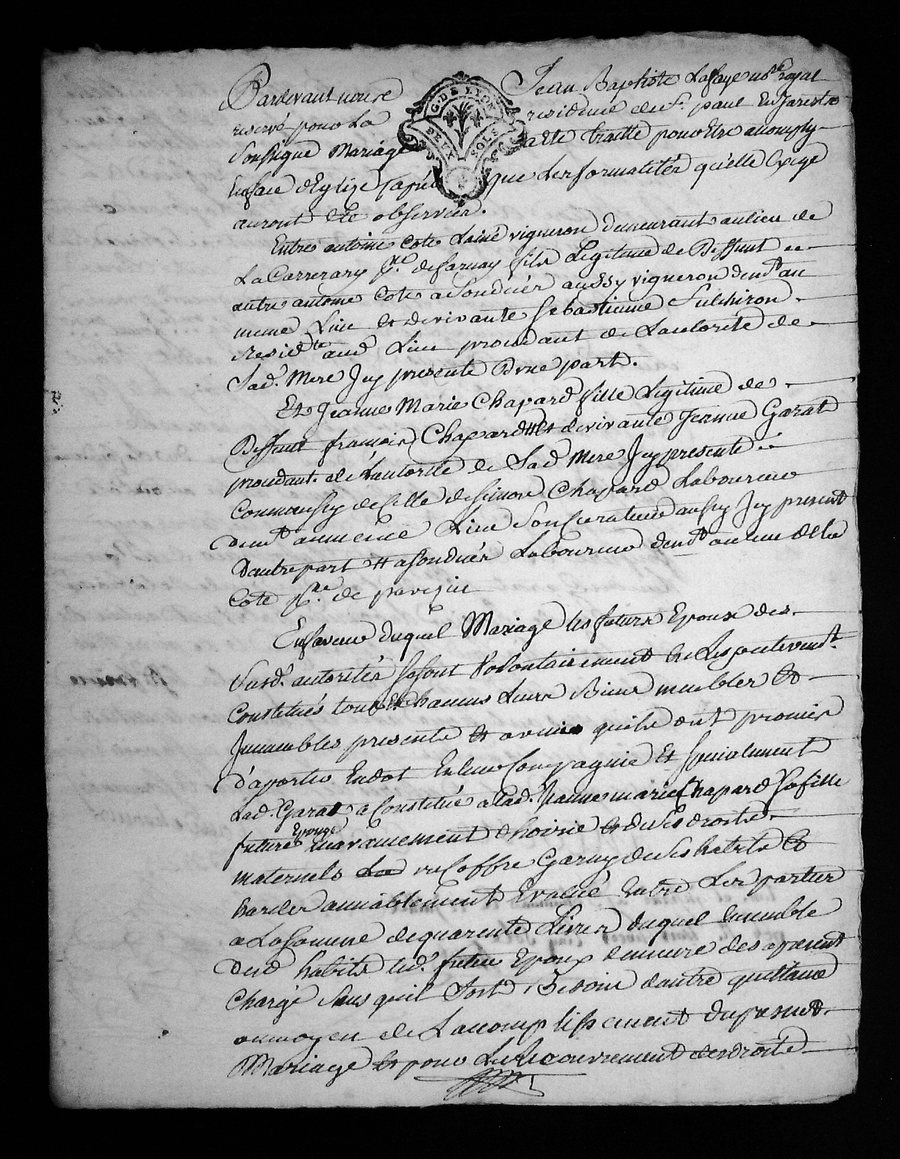 Pardevant nous Jean Baptiste Lafaye nore royal
reservé pour la G. DE LYON residence de St. paul En Jarest
Soussigné Mariage DEUX SOLS a été traitté pour Etre accomply
Enface d'Eglise après que Les formalités qu'elle Exige
auront été observées.
Entre antoine Cote Lainé vigneron demeurant au lieu de
La Carrerary psse. de farnay fils Legitime de Deffunt
autre antoine Cote a Son vivant aussy vigneron demt. au
meme Lieu Et de vivante Sebastienne Fulchiron
residte. aud. Lieu procedant de Lautorité de
Sad. Mere Icy presente D'une part.
Et Jeanne Marie Chapard fille Legitime de
Deffunt françois Chapard Et de vivante Jeanne Garat
procedant de L'autorité de Sad. Mere Icy presente
de Simon Chapard Laboureur
demt. au meme Lieu Son aussy Icy present
D'autre part Laboureur demt. au lieu de la
Cote psse. de pavezin
En faveur duquel Mariage les futurs Epoux des
Susd. autorités Se Sont Volontairement
Constitués tous Et chacuns Leurs Biens meubles Et
Immeubles presents Et avenir quils ont promis
d'aporter En dot En leur Compagnie Et Specialement
Lad. Garat a Constitué a Lad. Jeanne marie Chapard Sa fille
future Epouze En avancement d'hoirie Et de Ses droits
maternels un Coffre Garny de Ses habits Et
hardes amiablement Evalué Entre Les parties
a La Somme de quarente Livres duquel Ensemble
desd. habits led. futur Epoux demeure des apresent
Chargé Sans quil Soit Besoin d'autre quittance
au moyen de L'accomplissement du present
Mariage Et pour Le Recouvrement des droits